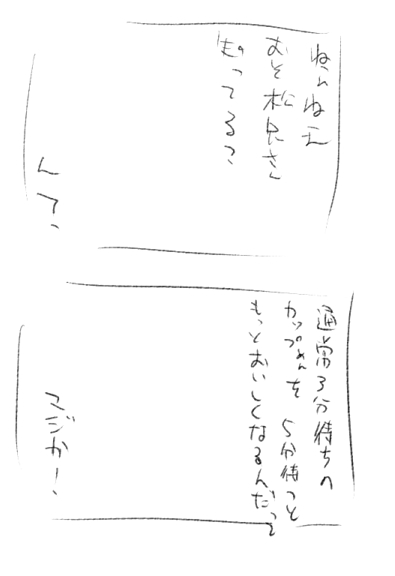 ねぇねえ
おそ松兄さん
知ってる?
ん?
通常3分待ちの
カップめんを5分待つと
もっとおいしくなるんだって
マジか!